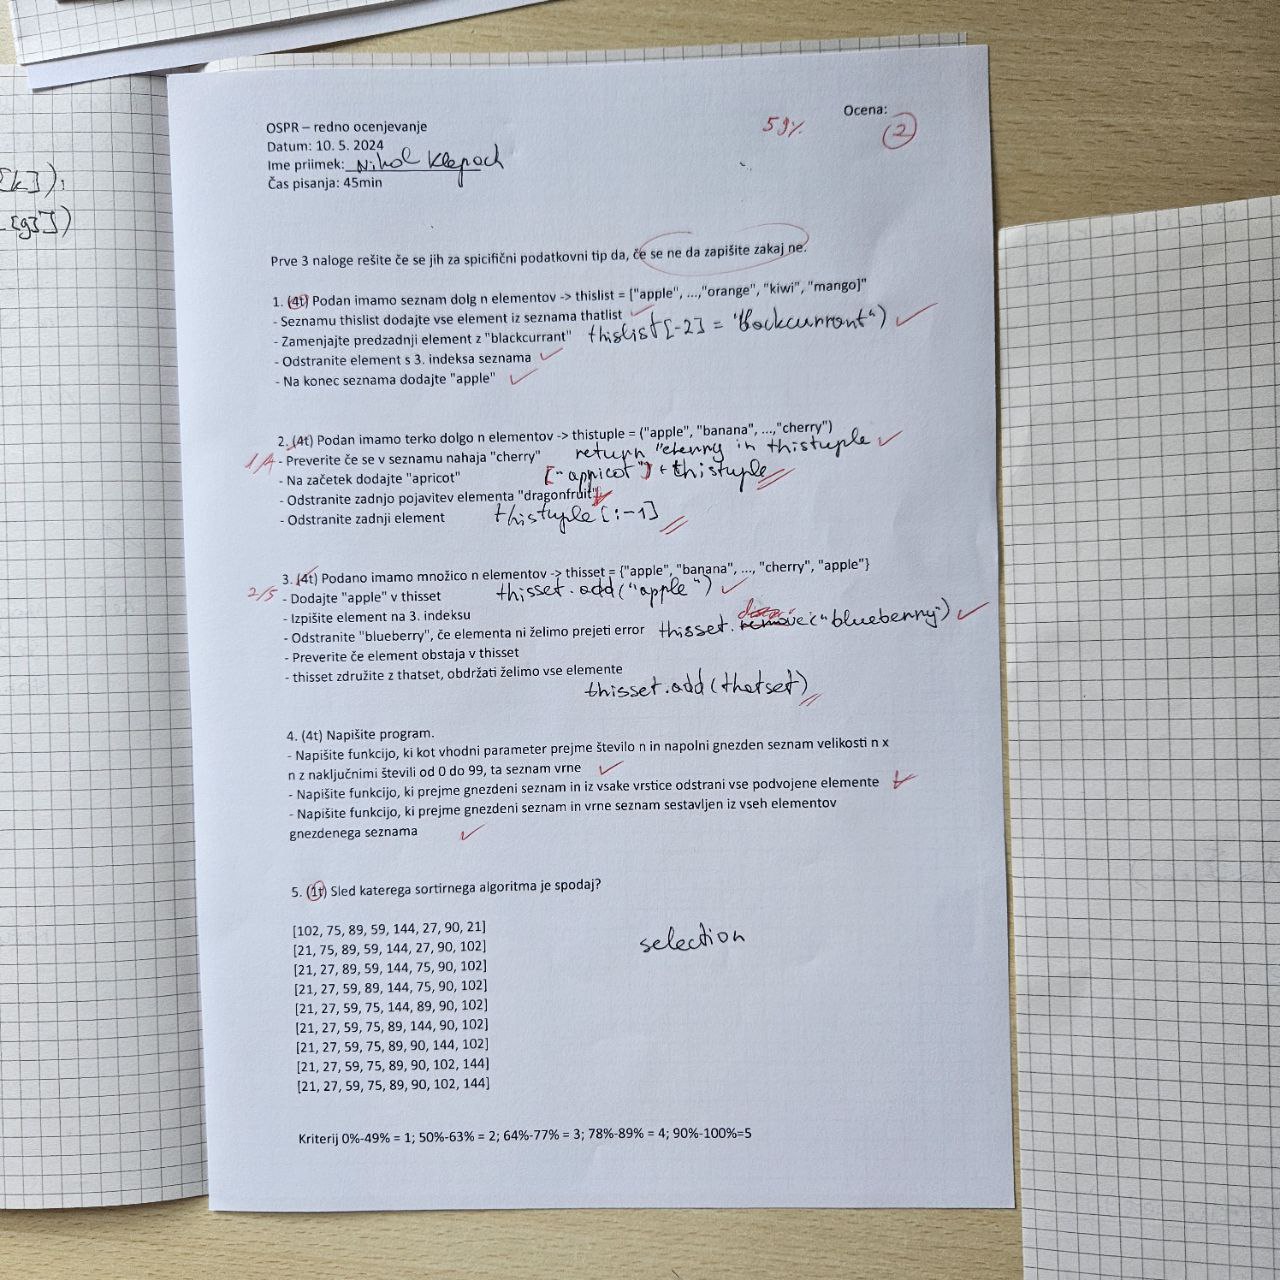 [k]):
[g]])
Ocena:
59%
2
OSPR – redno ocenjevanje
Datum: 10. 5. 2024
Ime priimek: Nikol Klepoch
Čas pisanja: 45min
Prve 3 naloge rešite če se jih za spicifični podatkovni tip da, če se ne da zapišite zakaj ne.
1. (4t) Podan imamo seznam dolg n elementov -> thislist = ["apple", ...,"orange", "kiwi", "mango]"
- Seznamu thislist dodajte vse element iz seznama thatlist
- Zamenjajte predzadnji element z "blackcurrant" thislist[-2] = "blockcurrant")
- Odstranite element s 3. indeksa seznama
- Na konec seznama dodajte "apple"
2. (4t) Podan imamo terko dolgo n elementov -> thistuple = ("apple", "banana", ...,"cherry")
1/4 - Preverite če se v seznamu nahaja "cherry" return "cherry in thistuple
- Na začetek dodajte "apricot" ["apricot"] + thistuple
- Odstranite zadnjo pojavitev elementa "dragonfruit"
- Odstranite zadnji element thistuple[:-1]
3. (4t) Podano imamo množico n elementov -> thisset = {"apple", "banana", ..., "cherry", "apple"}
2/5 - Dodajte "apple" v thisset thisset.add("apple")
- Izpišite element na 3. indeksu
- Odstranite "blueberry", če elementa ni želimo prejeti error thisset.remove("blueberry")
- Preverite če element obstaja v thisset
- thisset združite z thatset, obdržati želimo vse elemente
thisset.add(thatset)
4. (4t) Napišite program.
- Napišite funkcijo, ki kot vhodni parameter prejme število n in napolni gnezden seznam velikosti n x
n z naključnimi števili od 0 do 99, ta seznam vrne
- Napišite funkcijo, ki prejme gnezdeni seznam in iz vsake vrstice odstrani vse podvojene elemente
- Napišite funkcijo, ki prejme gnezdeni seznam in vrne seznam sestavljen iz vseh elementov
gnezdenega seznama
5. (1t) Sled katerega sortirnega algoritma je spodaj?
[102, 75, 89, 59, 144, 27, 90, 21]
selection
[21, 75, 89, 59, 144, 27, 90, 102]
[21, 27, 89, 59, 144, 75, 90, 102]
[21, 27, 59, 89, 144, 75, 90, 102]
[21, 27, 59, 75, 144, 89, 90, 102]
[21, 27, 59, 75, 89, 144, 90, 102]
[21, 27, 59, 75, 89, 90, 144, 102]
[21, 27, 59, 75, 89, 90, 102, 144]
[21, 27, 59, 75, 89, 90, 102, 144]
Kriterij 0%-49% = 1; 50%-63% = 2; 64%-77% = 3; 78%-89% = 4; 90%-100%=5